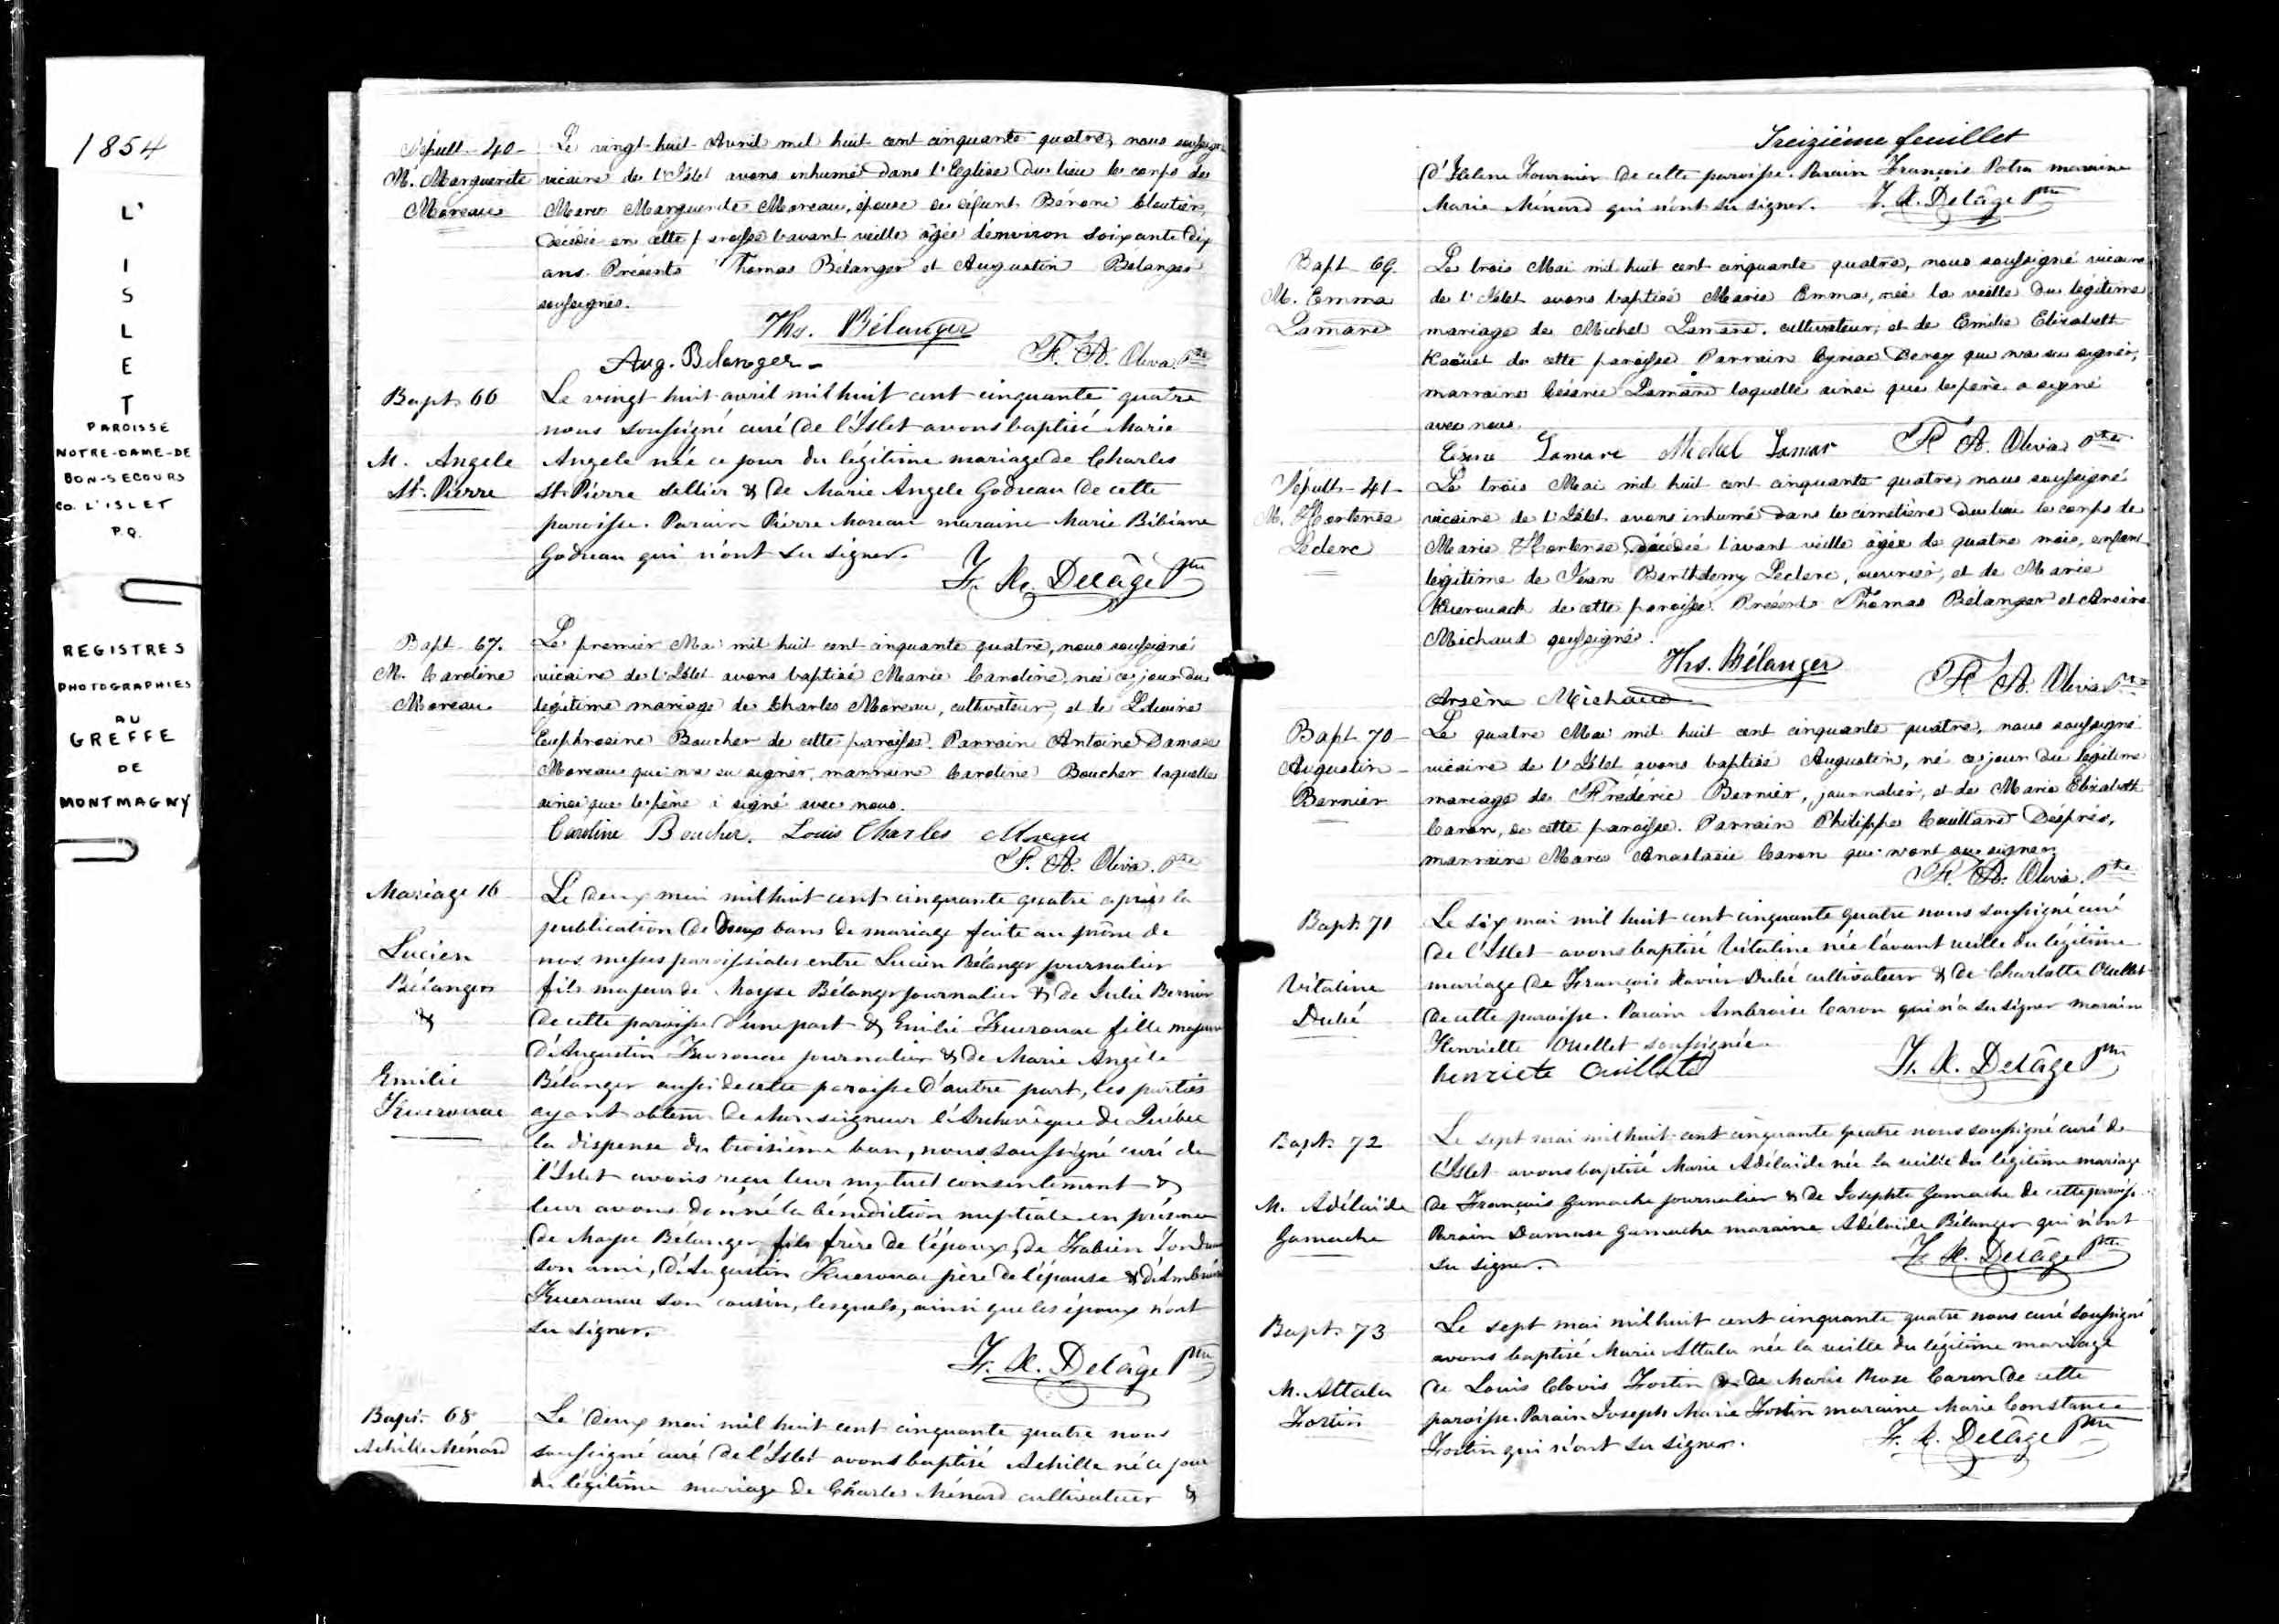 1854
L'
I
S
L
E
T
PAROISSE
NOTRE-DAME-DE
BON-SECOURS
CO. L'ISLET
P.Q.
REGISTRES
PHOTOGRAPHIES
AU
GREFFE
DE
MONTMAGNY
Sépult - 40 -
M. Marguerite
Moreau
Le vingt-huit Avril mil huit cent cinquante quatre, nous soussigné
vicaire de l'Islet avons inhumé dans l'Eglise du lieu le corps de
Marie Marguerite Moreau, épouse de défunt Bénoni Cloutier,
décédée en cette paroisse l'avant veille âgée d'environ soixante dix
ans. Présents Thomas Bélanger et Augustin Bélanger
soussignés.
Ths. Bélanger
Aug. Belanger - F. A. Oliva Ptre
Bapt. 66
M. Angele
St. Pierre
Le vingt huit avril mil huit cent cinquante quatre
nous soussigné curé de l'Islet avons baptisé Marie
Angele née ce jour du légitime mariage de Charles
St. Pierre sellier & de Marie Angele Godreau de cette
paroisse. Parain Pierre Moreau maraine Marie Bibiane
Godreau qui n'ont su signer.
Fr. X. Delâge Ptre
Bapt. 67.
M. Caroline
Moreau
Le premier Mai mil huit cent cinquante quatre, nous soussigné
vicaire de l'Islet avons baptisé Marie Caroline, née ce jour du
légitime mariage de Charles Moreau, cultivateur, et de
Euphrosine Boucher de cette paroisse. Parrain Antoine Damase
Moreau qui n'a su signer, marraine Caroline Boucher laquelle
ainsi que le père a signé avec nous.
Caroline Boucher. Louis Charles Moreau
F. A. Oliva. Ptre
Mariage 16
Lucien
Bélanger
&
Emilie
Kuerouac
Le deux mai mil huit cent cinquante quatre après la
publication de deux bans de mariage faite au prône de
nos messes paroissiales entre Lucien Bélanger journalier
fils majeur de Moyse Bélanger journalier & de Julie Bernier
de cette paroisse d'une part & Emilie Kuerouac fille majeure
d'Augustin Kuerouac journalier & de Marie Angèle
Bélanger aussi de cette paroisse d'autre part, les parties
ayant obtenu de Monseigneur l'Archevêque de Québec
la dispense du troisième ban, nous soussigné curé de
l'Islet avons reçu leur mutuel consentement &
leur avons donné la bénédiction nuptiale en présence
de Moyse Bélanger fils frère de l'époux, de Fabien
son ami, d'Augustin Kuerouac père de l'épouse & d'Ambroise
Kuerouac son cousin, lesquels, ainsi que les époux n'ont
su signer.
Fr. X. Delâge Ptre
Bapt. 68
Achille Ménard
Le deux mai mil huit cent cinquante quatre nous
soussigné curé de l'Islet avons baptisé Achille né ce jour
du légitime mariage de Charles Ménard cultivateur &
Treizième feuillet
d'Helene Fournier de cette paroisse. Parain François Potvin maraine
Marie Ménard qui n'ont su signer. F. X. Delâge Ptre
Bapt - 69.
M. Emma
Lamarre
Le trois Mai mil huit cent cinquante quatre, nous soussigné vicaire
de l'Islet avons baptisé Marie Emma, née la veille du légitime
mariage de Michel Lamarre, cultivateur, et de Emilie Elizabeth
de cette paroisse. Parrain qui n'a su signer,
marraine Césarie Lamarre laquelle ainsi que le père a signé
avec nous.
Lamare Michel Lamar F A. Oliva Ptre
Sépult - 41 -
M. Hortense
Leclerc
Le trois Mai mil huit cent cinquante quatre, nous soussigné
vicaire de l'Islet avons inhumé dans le cimetière du lieu le corps de
Marie Hortense, décédée l'avant veille âgée de quatre mois, enfant
légitime de Jean Barthélemy Leclerc, ouvrier, et de Marie
Kuerouack de cette paroisse. Présents Thomas Bélanger et Arsène
Michaud soussignés.
Ths. Bélanger
Arsène Michaud F A. Oliva Ptre
Bapt. 70 -
Augustin -
Bernier
Le quatre Mai mil huit cent cinquante quatre, nous soussigné
vicaire de l'Islet avons baptisé Augustin, né ce jour du légitime
mariage de Fréderic Bernier, journalier, et de Marie Elizabeth
Caron, de cette paroisse. Parrain Philippe Couillard Després,
marraine Marie Anastasie Caron qui n'ont su signer.
F. A. Oliva. Ptre
Bapt. 71
Vitaline
Dubé
Le six mai mil huit cent cinquante quatre nous soussigné curé
de l'Islet avons baptisé Vitaline née l'avant veille du légitime
mariage de François Xavier Dubé cultivateur & de Charlotte Ouellet
de cette paroisse. Parain Ambroise Caron qui n'a su signer maraine
Henriette Ouellet soussignée
henriete Ouillete Fr. X. Delâge Ptre
Bapt. 72
M. Adélaïde
Gamache
Le sept mai mil huit cent cinquante quatre nous soussigné curé de
l'Islet avons baptisé Marie Adélaïde née la veille du légitime mariage
de François Gamache journalier & de Josephte Gamache de cette paroisse
Parain Damase Gamache maraine Adélaïde Bélanger qui n'ont
su signer. Fr. X. Delâge Ptre
Bapt. 73
M. Attala
Fortin
Le sept mai mil huit cent cinquante quatre nous curé soussigné
avons baptisé Marie Attala née la veille du légitime mariage
de Louis Clovis Fortin & de Marie Rose Caron de cette
paroisse. Parain Joseph Marie Fortin maraine Marie Constance
Fortin qui n'ont su signer. Fr. X. Delâge Ptre